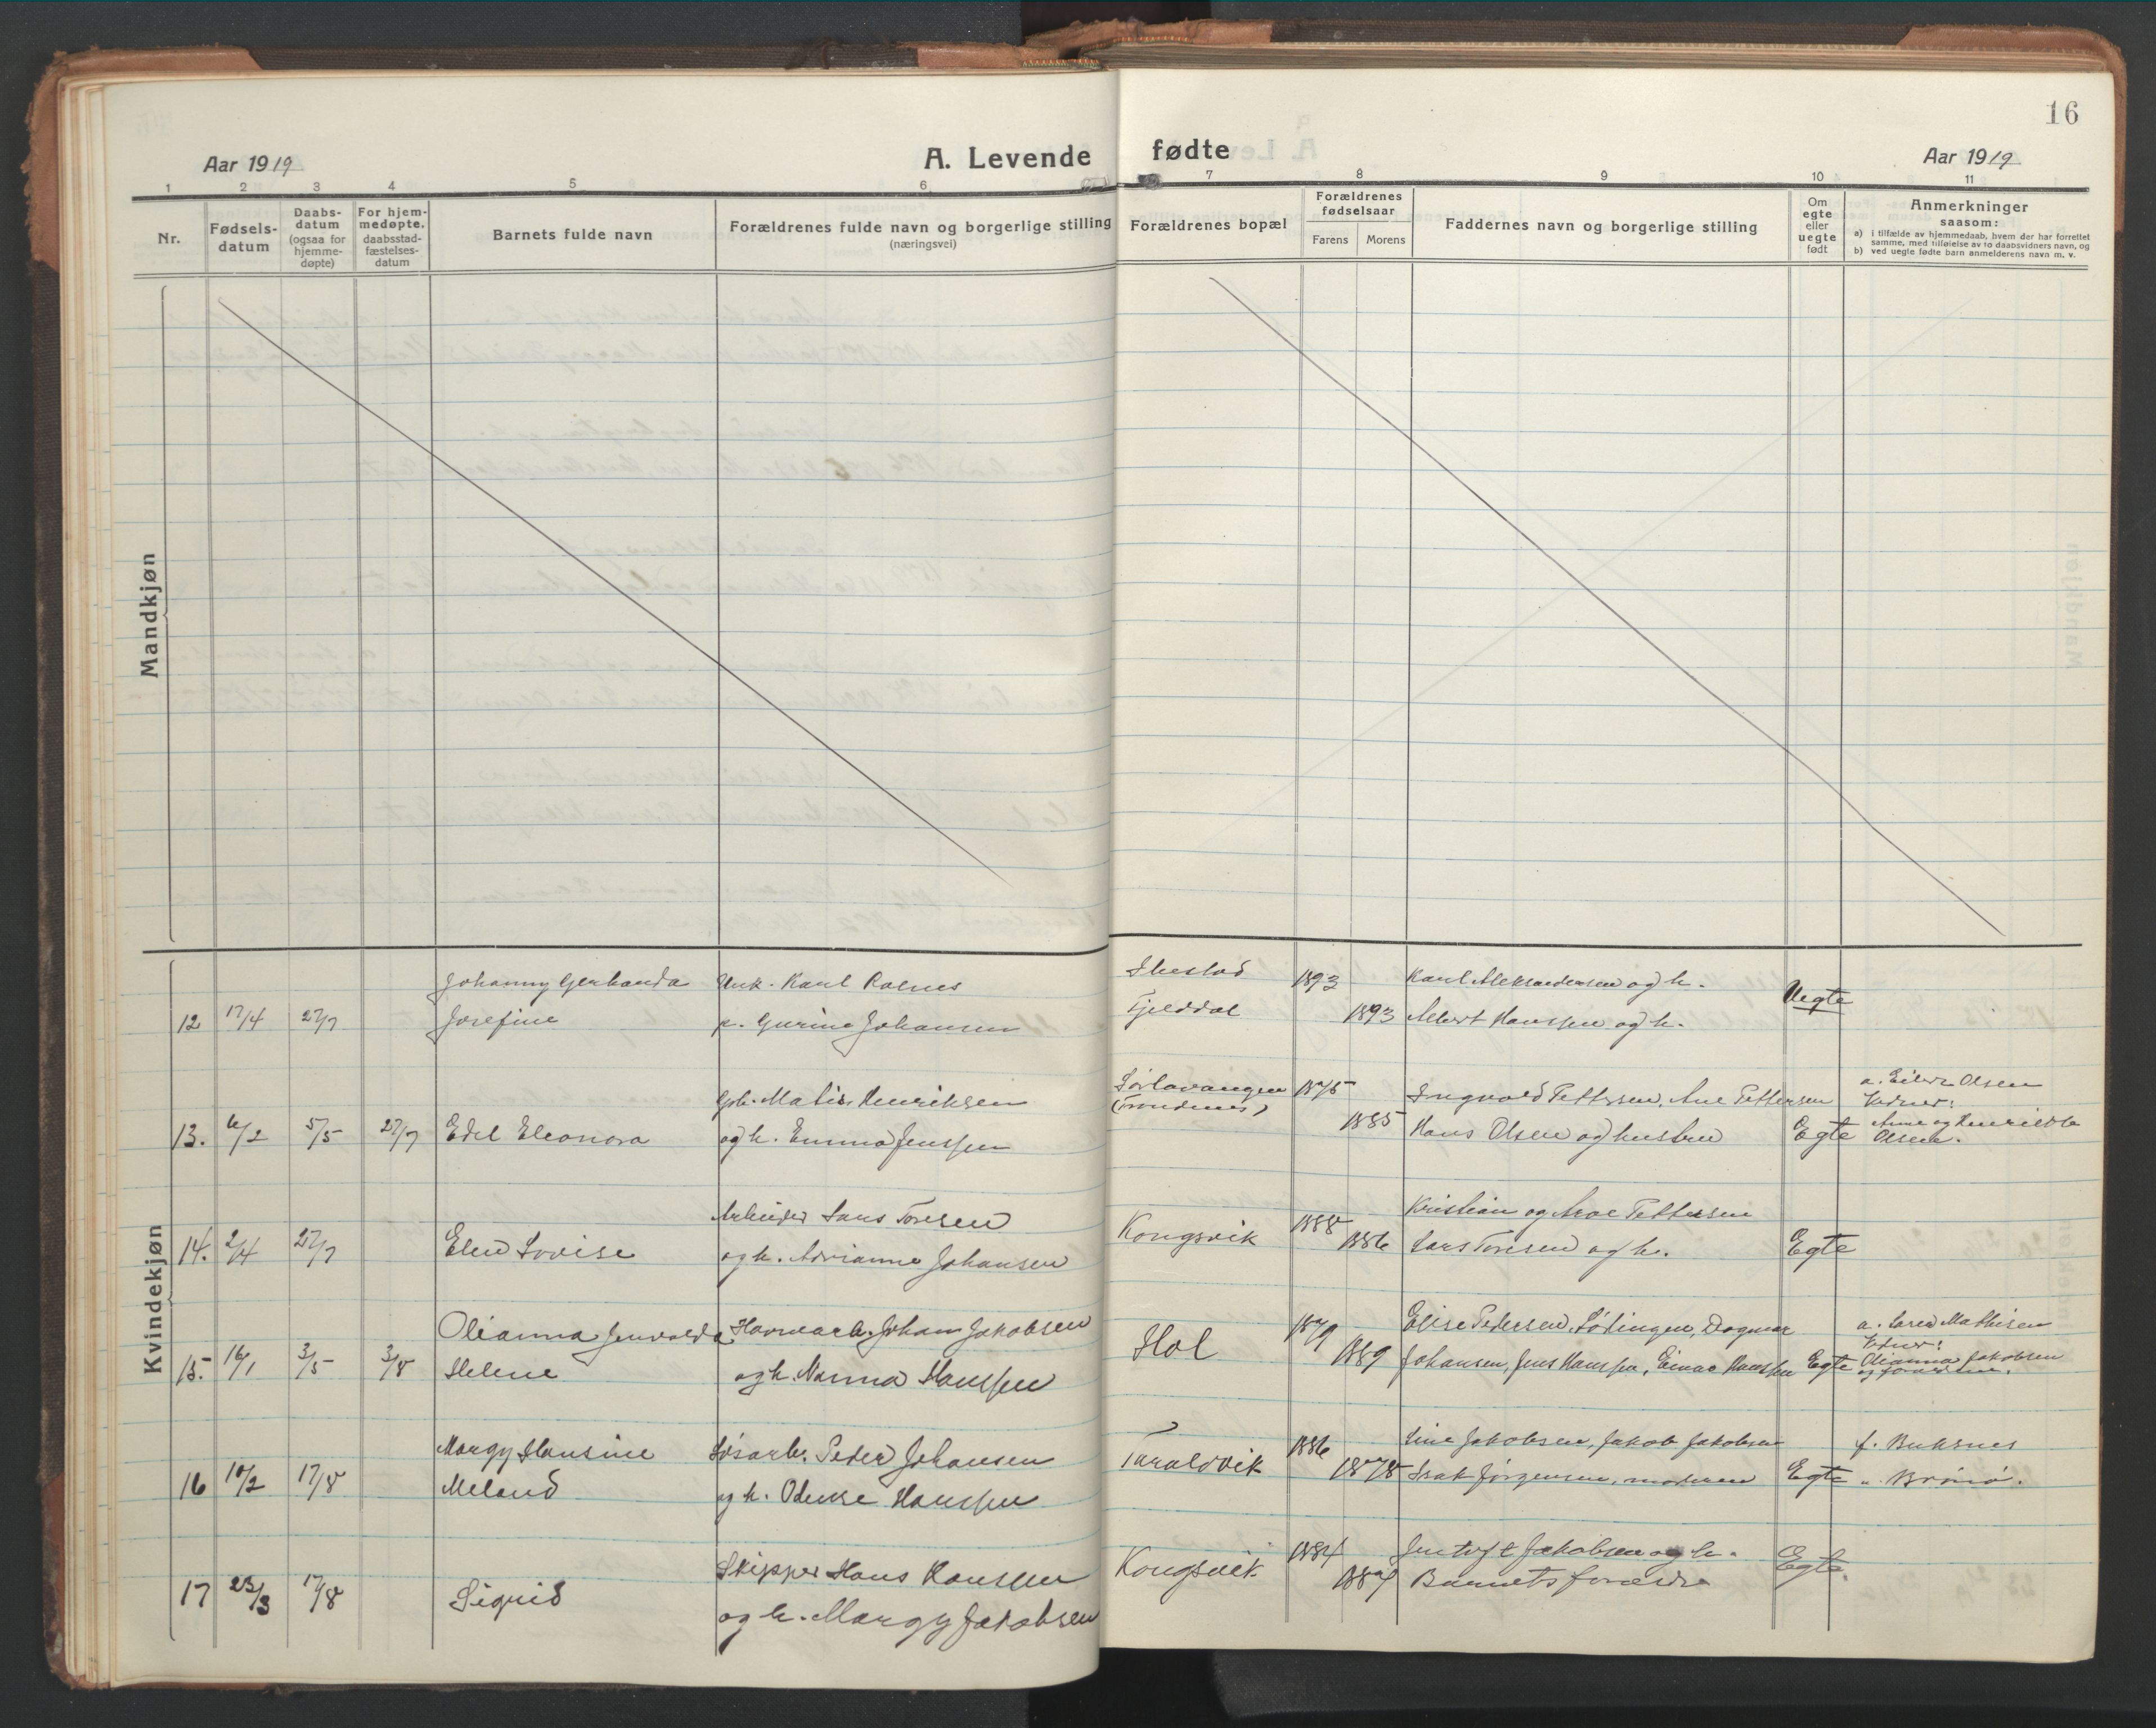 16
Aar 1919
A. Levende fødte
Aar 1919
1 2 3 4 5 6 7 8 9 10 11
Nr.
Fødsels-
datum
Daabs-
datum
(ogsaa for
hjemme-
døpte)
For hjem-
medøpte,
daabsstad-
fæstelses-
datum
Barnets fulde navn
Forældrenes fulde navn og borgerlige stilling
(næringsvei)
Forældrenes bopæl
Forældrenes
fødselsaar
Farens Morens
Faddernes navn og borgerlige stilling
Om
egte
eller
uegte
født
Anmerkninger
saasom:
a) i tilfælde av hjemmedaab, hvem der har forrettet
samme, med tilføielse av to daabsvidners navn, og
b) ved uegte fødte barn anmelderens navn m. v.
Mandkjøn
Kvindekjøn
Johanny Gerhanda Unk. Karl Rolnes 1893 Karl Aleksandersen og h. Uegte
12 17/4 27/7 Josefine p. Gurine Johansen Tjelddal 1893 Albert Hanssen og h.
Gbr. Matis Henriksen Sørlavangen 1875 Ingvald Pettersen, Ane Pettersen a. Olsen
(Trondenes)
13. 6/2 5/5 27/7 Edel Eleonora og h. Emma Jenssen 1885 Hans Olsen og hustru Egte Anne og Henriette
Olsen.
Arbeider Lars Toresen Kongsvik 1888 Kristian og Pettersen
14. 2/4 27/7 Elen Lovise og h. Adrianna Johansen 1886 Lars Toresen og h. Egte
Olianna Jenvalda Havnearb. Johan Jakobsen Hol 1879 Elise Pedersen, Lødingen, Dagmar a. Mathisen
15. 16/1 3/5 3/8 Helene og h. Nanna Hanssen 1889 Johansen, Jens Hanssen, Einar Hanssen Egte Olianna Jakobsen
Margy Hansine Løsarb. Peder Johansen Taraldvik 1886 Line Jakobsen, Jakob Jakobsen f. Buksnes
16 10/2 17/8 Meland og h. Odense Hanssen 1878 Isak Jørgensen, moderen Egte " Brønø.
Skipper Hans Hanssen Kongsvik 1884 Jentoft Jakobsen og h. Egte
17 23/3 17/8 Sigrid og h. Margy Jakobsen Barnets forældre